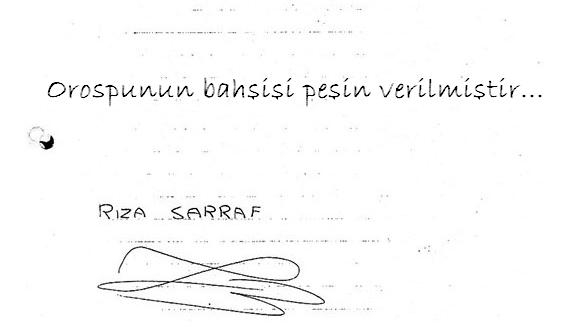 Orospunun bahşişi peşin verilmiştir...
RIZA SARRAF